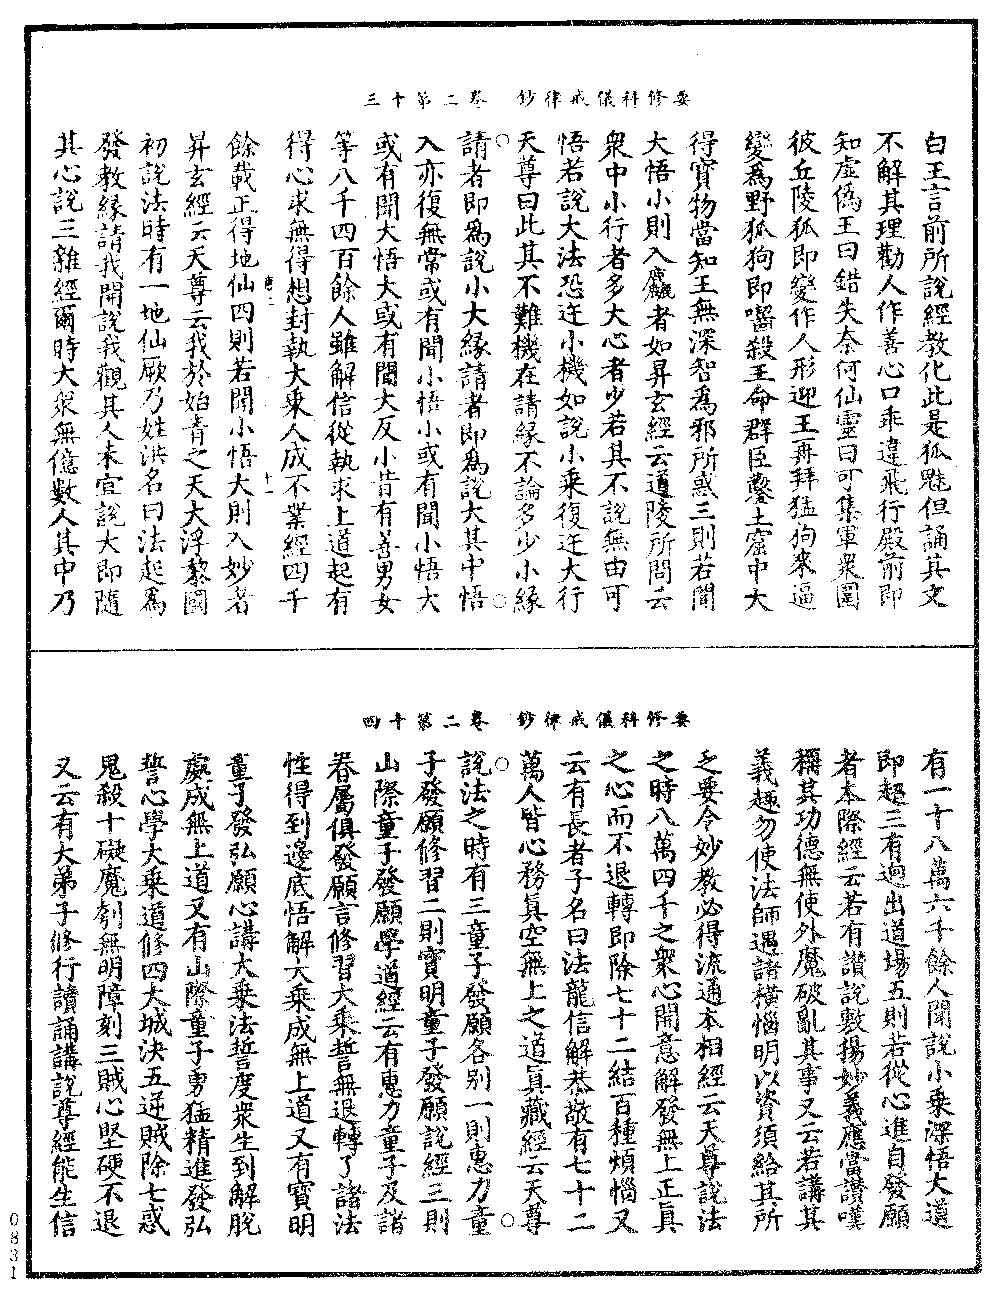 要修科儀戒律鈔　卷二第十三
白王言前所說經教化此是狐魅但誦其文
不解其理勸人作善心口乖違飛行殿前即
知虛僞王曰錯失奈何仙靈曰可集軍衆圍
彼丘陵狐即變作人形迎王再拜猛狗來逼
變爲野狐狗即嚙殺王命群臣鑿土窟中大
得寶物當知王無深智爲邪所惑三則若聞
大悟小則入麤者如昇玄經云道陵所問云
衆中小行者多大心者少若其不說無由可
悟若說大法恐迕小機如說小乘復迕大行
天尊曰此其不難機在請緣不論多少小緣
請者即爲說小大緣請者即爲說大其中悟
入亦復無常或有聞小悟小或有聞小悟大
或有聞大悟大或有聞大反小昔有善男女
等八千四百餘人雖解信從執求上道起有
得心求無得想封執大乘人成不業經四千
餘載正得地仙四則若聞小悟大則入妙者
昇玄經云天尊云我於始青之天大浮黎國
初說法時有一地仙厥乃姓洪名曰法起爲
發教緣請我開說我觀其人未宜說大即隨
其心說三雜經爾時大衆無億數人其中乃
唐二　十一
要修科儀戒律鈔　卷二第十四
有一十八萬六千餘人聞說小乘深悟大道
即超三有迥出道場五則若從心進自發願
者本際經云若有讚說敷揚妙義應當讚嘆
稱其功德無使外魔破亂其事又云若講其
義趣勿使法師遇諸橫惱明以資須給其所
乏要令妙教必得流通本相經云天尊說法
之時八萬四千之衆心開意解發無上正眞
之心而不退轉即除七十二結百種煩惱又
云有長者子名曰法龍信解恭敬有七十二
萬人皆心務眞空無上之道眞藏經云天尊
說法之時有三童子發願各別一則惠力童
子發願修習二則寶明童子發願說經三則
山際童子發願學道經云有惠力童子及諸
眷屬俱發願言修習大乘誓無退轉了諸法
性得到邊底悟解大乘成無上道又有寶明
童子發弘願心講大乘法誓度衆生到解脫
處成無上道又有山際童子勇猛精進發弘
誓心學大乘道修四大城決五逆賊除七惑
鬼殺十礙魔刳無明障刻三賊心堅硬不退
又云有大弟子修行讀誦講說尊經能生信
0831